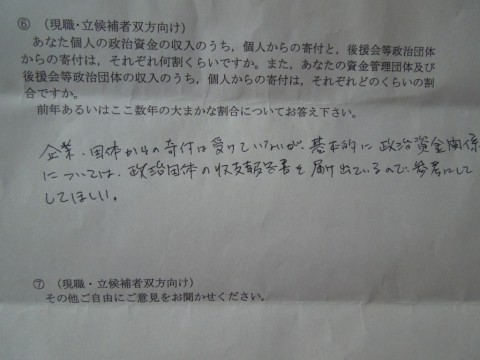 ⑥ (現職・立候補者双方向け)
あなた個人の政治資金の収入のうち，個人からの寄付と，後援会等政治団体
からの寄付は，それぞれ何割くらいですか。また，あなたの資金管理団体及び
後援会等政治団体の収入のうち，個人からの寄付は，それぞれどのくらいの割
合ですか。
前年あるいはここ数年の大まかな割合についてお答え下さい。
企業・団体からの寄付は受けていないが、基本的に政治資金関係
については、政治団体の収支報告書を届け出ているので、参考にして
してほしい。
⑦ (現職・立候補者双方向け)
その他ご自由にご意見をお聞かせください。